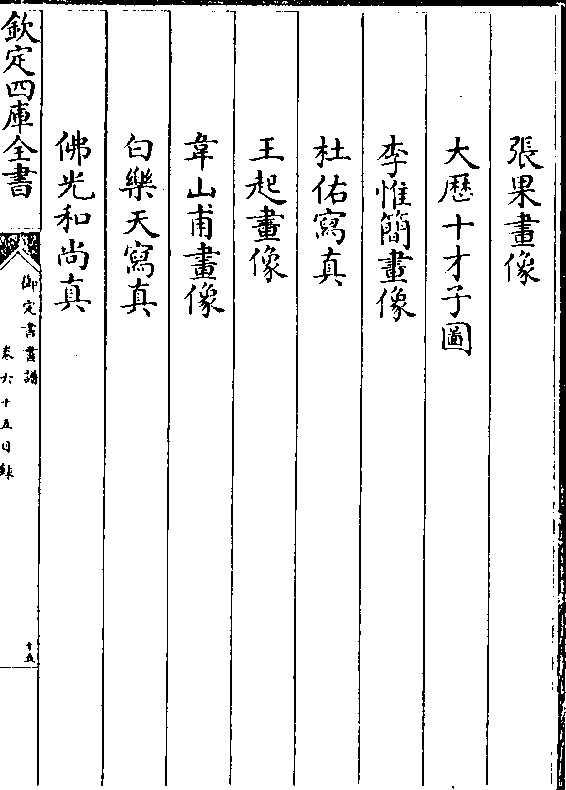 張果畫像
大歴十才子圖
李惟簡畫像
杜佑寫真
王起畫像
韋山甫畫像
白樂天寫真
佛光和尚真
欽定四庫全書
御定書畫譜
卷六十五目録
十五